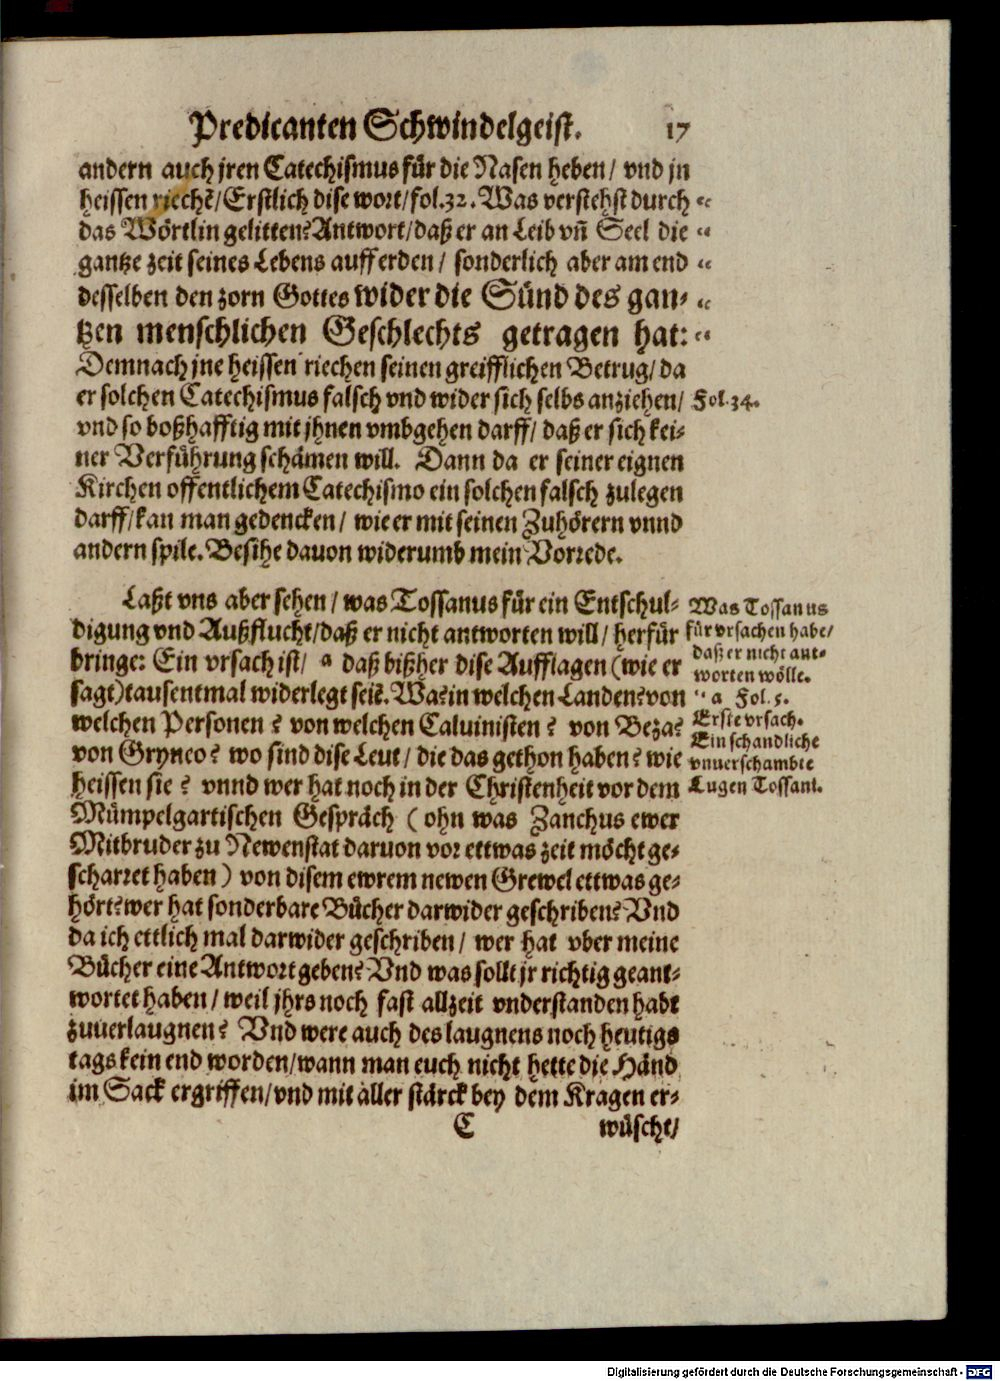 Predicanten Schwindelgeist. 17
andern auch jren Catechismus für die Nasen heben / vnd jn
heissen riechẽ / Erstlich dise wort / fol. 32. Was verstehst durch “
das Wörtlin gelitten? Antwort / daß er an Leib vñ Seel die “
gantze zeit seines Lebens auff erden / sonderlich aber am end “
desselben den zorn Gottes wider die Sünd des gan- “
tzen menschlichen Geschlechts getragen hat: “
Demnach jne heissen riechen seinen greifflichen Betrug / da
er solchen Catechismus falsch vnd wider sich selbs anziehen /
Fol. 34.
vnd so boßhafftig mit jhnen vmbgehen darff / daß er sich kei-
ner Verführung schämen will. Dann da er seiner eignen
Kirchen offentlichem Catechismo ein solchen falsch zulegen
darff / kan man gedencken / wie er mit seinen Zuhörern vnnd
andern spile. Besihe dauon widerumb mein Vorrede.
Laßt vns aber sehen / was Tossanus für ein Entschul-
digung vnd Außflucht / daß er nicht antworten will / herfür
bringe: Ein vrsach ist / a daß bißher dise Aufflagen (wie er
sagt) tausentmal widerlegt seiẽ. Wa? in welchen Landen? von
welchen Personen? von welchen Caluinisten? von Beza?
von Gryneo? wo sind dise Leut / die das gethon haben? wie
heissen sie? vnnd wer hat noch in der Christenheit vor dem
Mümpelgartischen Gespräch (ohn was Zanchus ewer
Mitbruder zu Newenstat daruon vor ettwas zeit möcht ge-
scharret haben) von disem ewrem newen Grewel ettwas ge-
hört? wer hat sonderbare Bücher darwider geschriben? Vnd
da ich ettlich mal darwider geschriben / wer hat vber meine
Bücher eine Antwort geben? Vnd was sollt jr richtig geant-
wortet haben / weil jhrs noch fast allzeit vnderstanden habt
zuuerlaugnen? Vnd were auch des laugnens noch heutigs
tags kein end worden / wann man euch nicht hette die Händ
im Sack ergriffen / vnd mit aller stärck bey dem Kragen er-
C wüscht /
Was Tossanus
für vrsachen habe /
daß er nicht ant-
worten wölle.
“ a Fol. 5.
Erste vrsach.
Ein schandliche
vnuerschambte
Lugen Tossani.
Digitalisierung gefördert durch die Deutsche Forschungsgemeinschaft - DFG